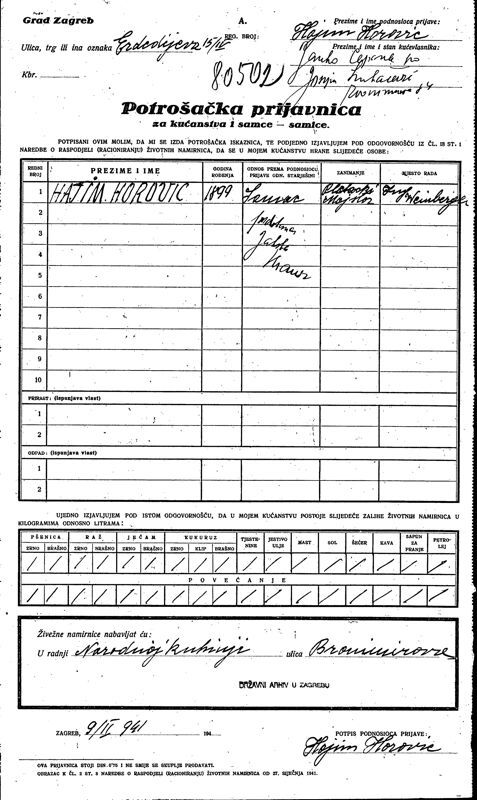 Grad Zagreb
A.
REG. BROJ:
Prezime i ime podnosioca prijave:
Hajim Horovic
Ulica, trg ili ina oznaka Erdedijeva 15/IV
Prezime i ime i stan kućevlasnika:
Kbr.
80502
Potrošačka prijavnica
za kućanstva i samce – samice.
POTPISANI OVIM MOLIM, DA MI SE IZDA POTROŠAČKA ISKAZNICA, TE PODJEDNO IZJAVLJUJEM POD ODGOVORNOŠĆU IZ ČL. 18 ST. 1
NAREDBE O RASPODJELI (RACIONIRANJU) ŽIVOTNIH NAMIRNICA, DA SE U MOJEM KUĆANSTVU HRANE SLIJEDEĆE OSOBE:
REDNI BROJ
PREZIME I IME
GODINA ROĐENJA
ODNOS PREMA PODNOSIOCU PRIJAVE ODN. STARJEŠINI
ZANIMANJE
MJESTO RADA
1 HAJIM HOROVIC 1899 Samac Weinberger
2
3
4
5
6
7
8
9
10
PRIRAST: (ispunjava vlast)
1
2
OTPAD: (ispunjava vlast)
1
2
UJEDNO IZJAVLJUJEM POD ISTOM ODGOVORNOŠĆU, DA U MOJEM KUĆANSTVU POSTOJE SLIJEDEĆE ZALIHE ŽIVOTNIH NAMIRNICA U
KILOGRAMIMA ODNOSNO LITRAMA:
PŠENICA RAŽ JEČAM KUKURUZ TJESTENINE JESTIVO ULJE MAST SOL ŠEĆER KAVA SAPUN ZA PRANJE PETROLEJ
ZRNO BRAŠNO ZRNO BRAŠNO ZRNO BRAŠNO ZRNO KLIP BRAŠNO
/ / / / / / / / / / / / / / / / /
POVEĆANJE
/ / / / / / / / / / / / / / / / /
Živežne namirnice nabavljat ću:
U radnji Narodnoj kuhinji ulica Bronimirova
DRŽAVNI ARHIV U ZAGREBU
ZAGREB, 9/IV 941 194
POTPIS PODNOSIOCA PRIJAVE:
Hajim Horovic
OVA PRIJAVNICA STOJI DIN 0'75 I NE SMIJE SE SKUPLJE PRODAVATI.
OBRAZAC K ČL. 2 ST. 3 NAREDBE O RASPODJELI (RACIONIRANJU) ŽIVOTNIH NAMIRNICA OD 27. SIJEČNJA 1941.